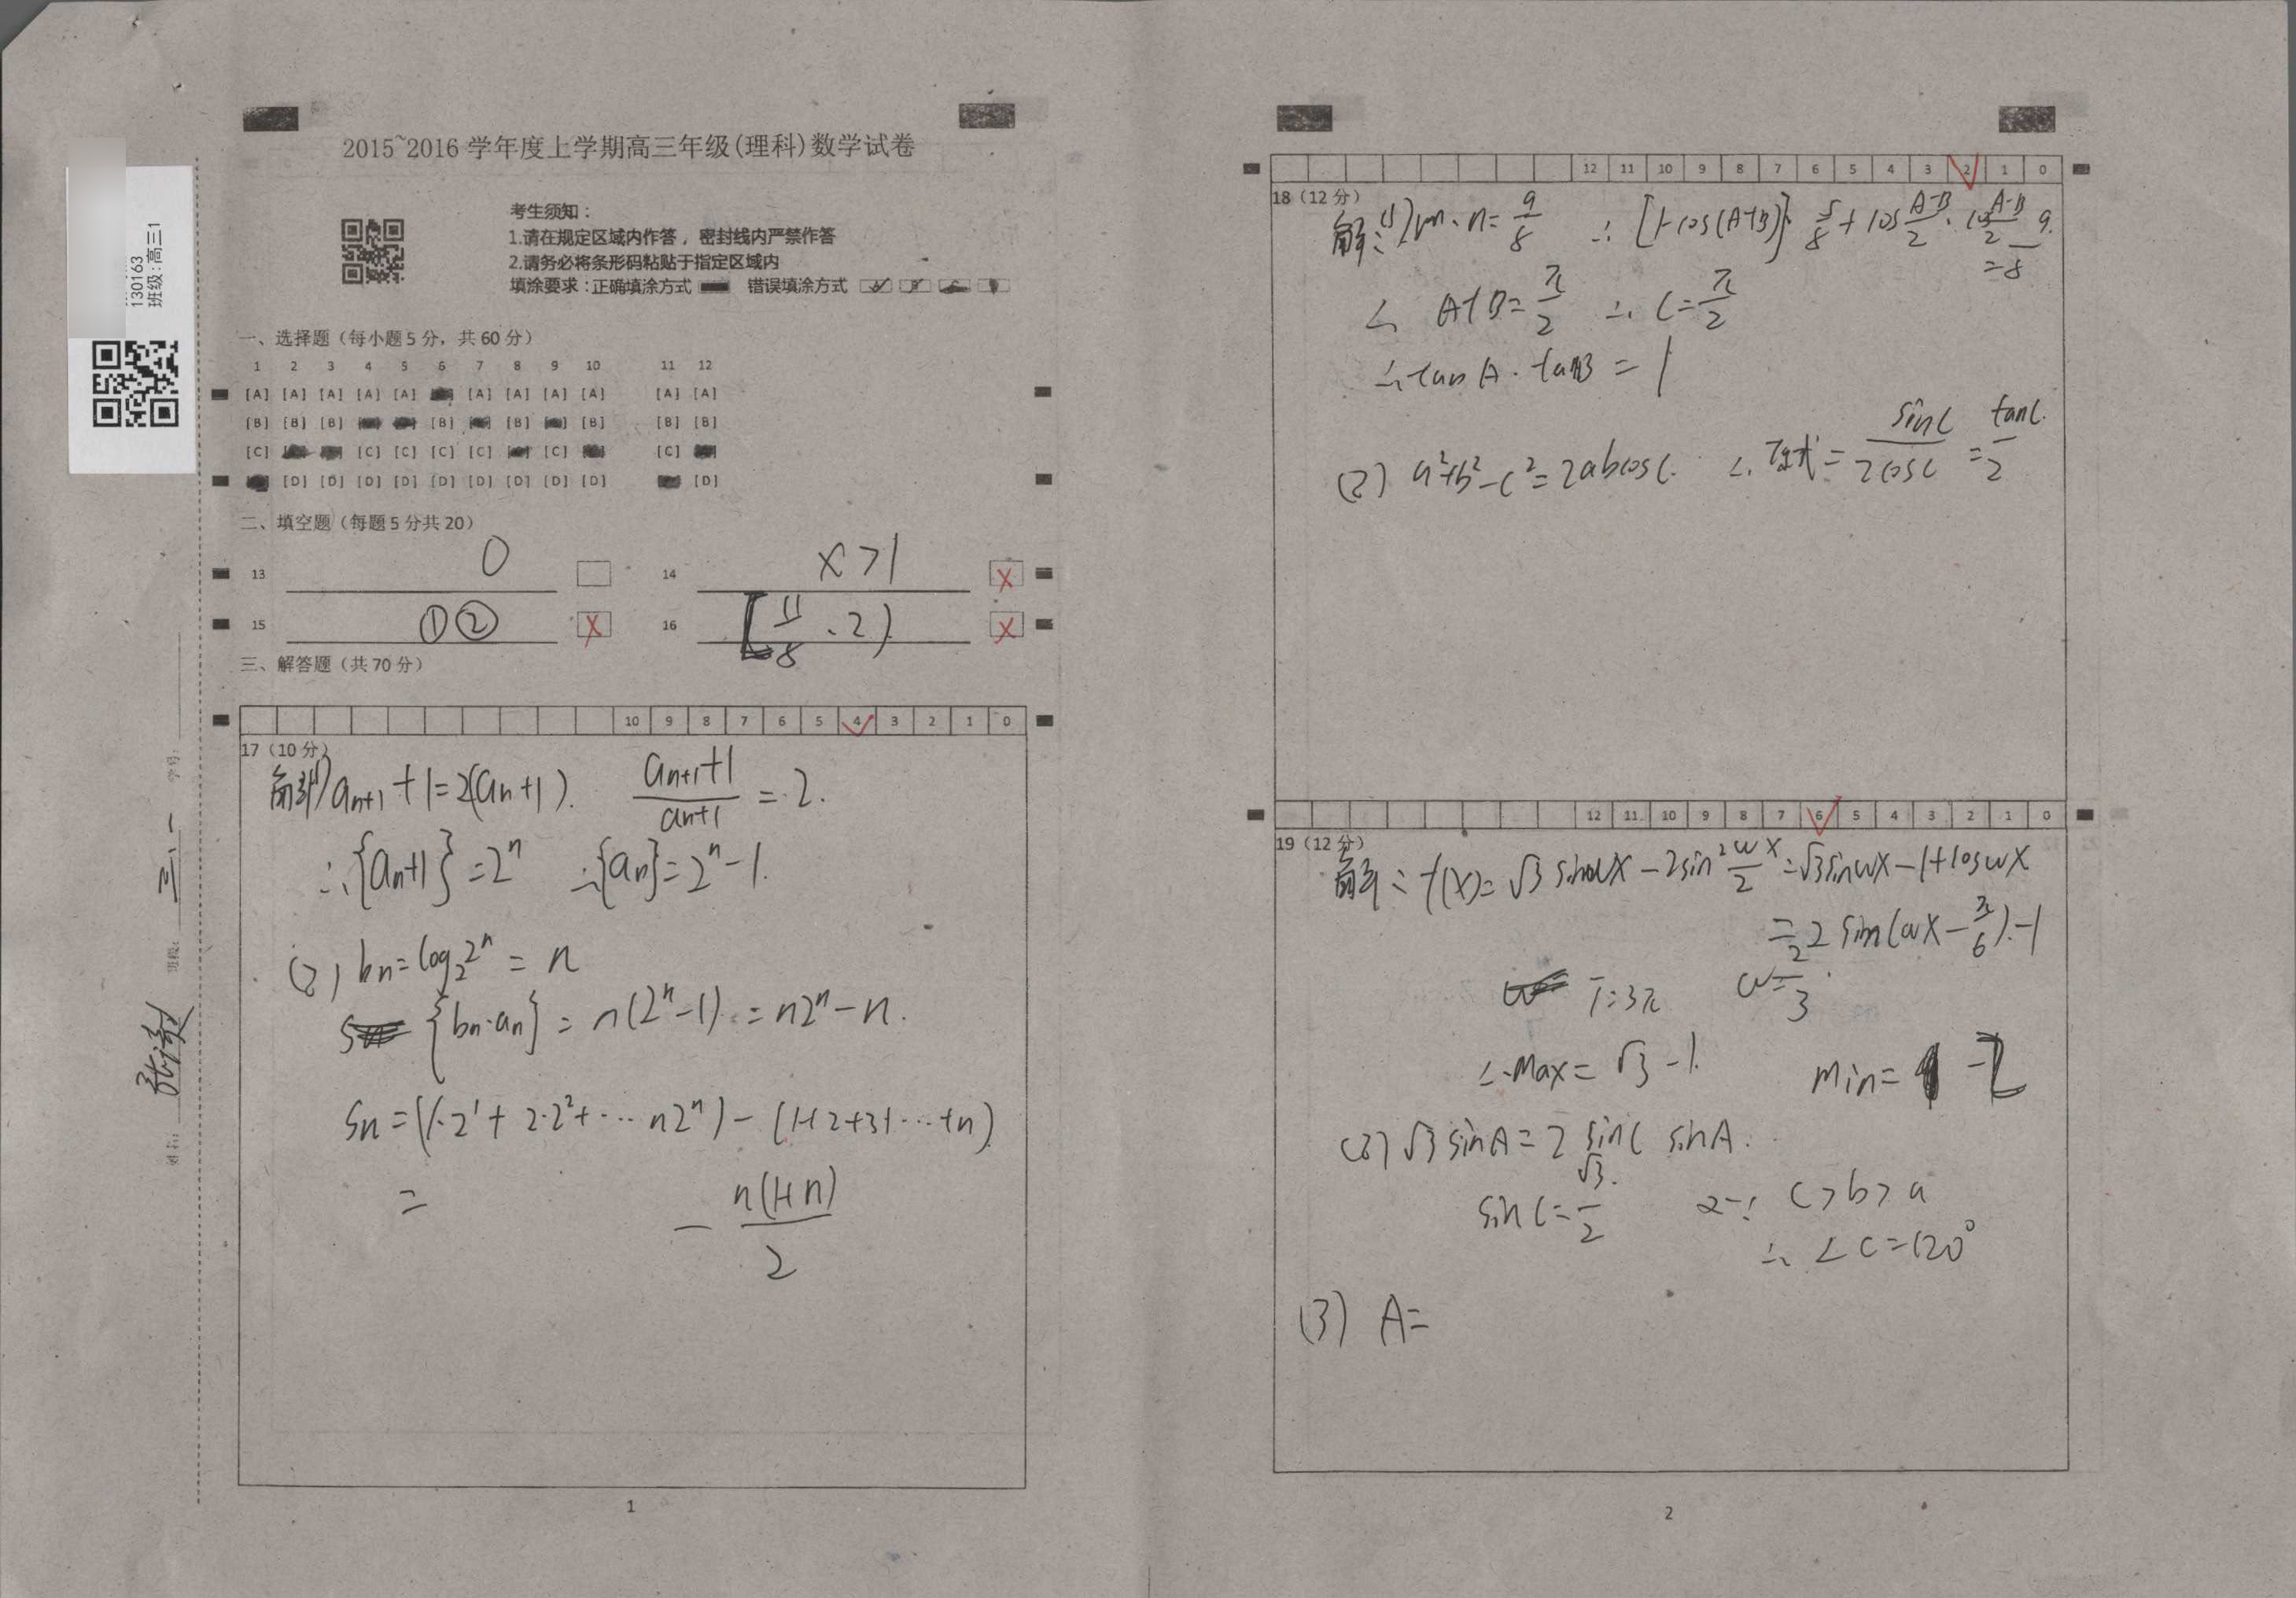 2015~2016 学年度上学期高三年级(理科)数学试卷
130163
班级:高三1
考生须知：
1.请在规定区域内作答，密封线内严禁作答
2.请务必将条形码粘贴于指定区域内
填涂要求：正确填涂方式 错误填涂方式
一、选择题（每小题5分，共60分）
1 2 3 4 5 6 7 8 9 10 11 12
[A] [A] [A] [A] [A] [A] [A] [A] [A] [A] [A]
[B] [B] [B] [B] [B] [B] [B] [B]
[C] [C] [C] [C] [C] [C] [C]
[D] [D] [D] [D] [D] [D] [D] [D] [D] [D]
二、填空题（每题5分共20）
13 0
14 x>1
15 ①②
16 [11/8 , 2)
三、解答题（共70分）
10 9 8 7 6 5 4 3 2 1 0
17（10分）
解(1) aₙ₊₁+1=2(aₙ+1). (aₙ₊₁+1)/(aₙ+1) = 2.
∴{aₙ+1}=2ⁿ ∴{aₙ}=2ⁿ-1.
(2) bₙ=log₂2ⁿ = n
{bₙ·aₙ} = n(2ⁿ-1) = n2ⁿ-n.
Sₙ=(1·2¹+2·2²+···n2ⁿ)-(1+2+3+···+n)
= - n(1+n)/2
学号:
班级: 三.一
姓名:
1
12 11 10 9 8 7 6 5 4 3 2 1 0
18（12分）
解:(1) m·n=9/8 ∴[1-cos(A+B)]·5/8+cos(A-B)/2·cos(A-B)/2=9/8
∴ A+B=π/2 ∴ C=π/2
∴tanA·tanB=1
(2) a²+b²-c²=2abcosC. ∴ 原式=sinC/2cosC=tanC/2
12 11 10 9 8 7 6 5 4 3 2 1 0
19（12分）
解: f(x)=√3sinωx-2sin²ωx/2=√3sinωx-1+cosωx
=2sin(ωx-π/6)-1
T=3π ω=2/3
∴Max=√3-1. Min= -2
(2) √3sinA=2sinC sinA.
sinC=√3/2 又∵ c>b>a
∴∠C=120°
(3) A=
2